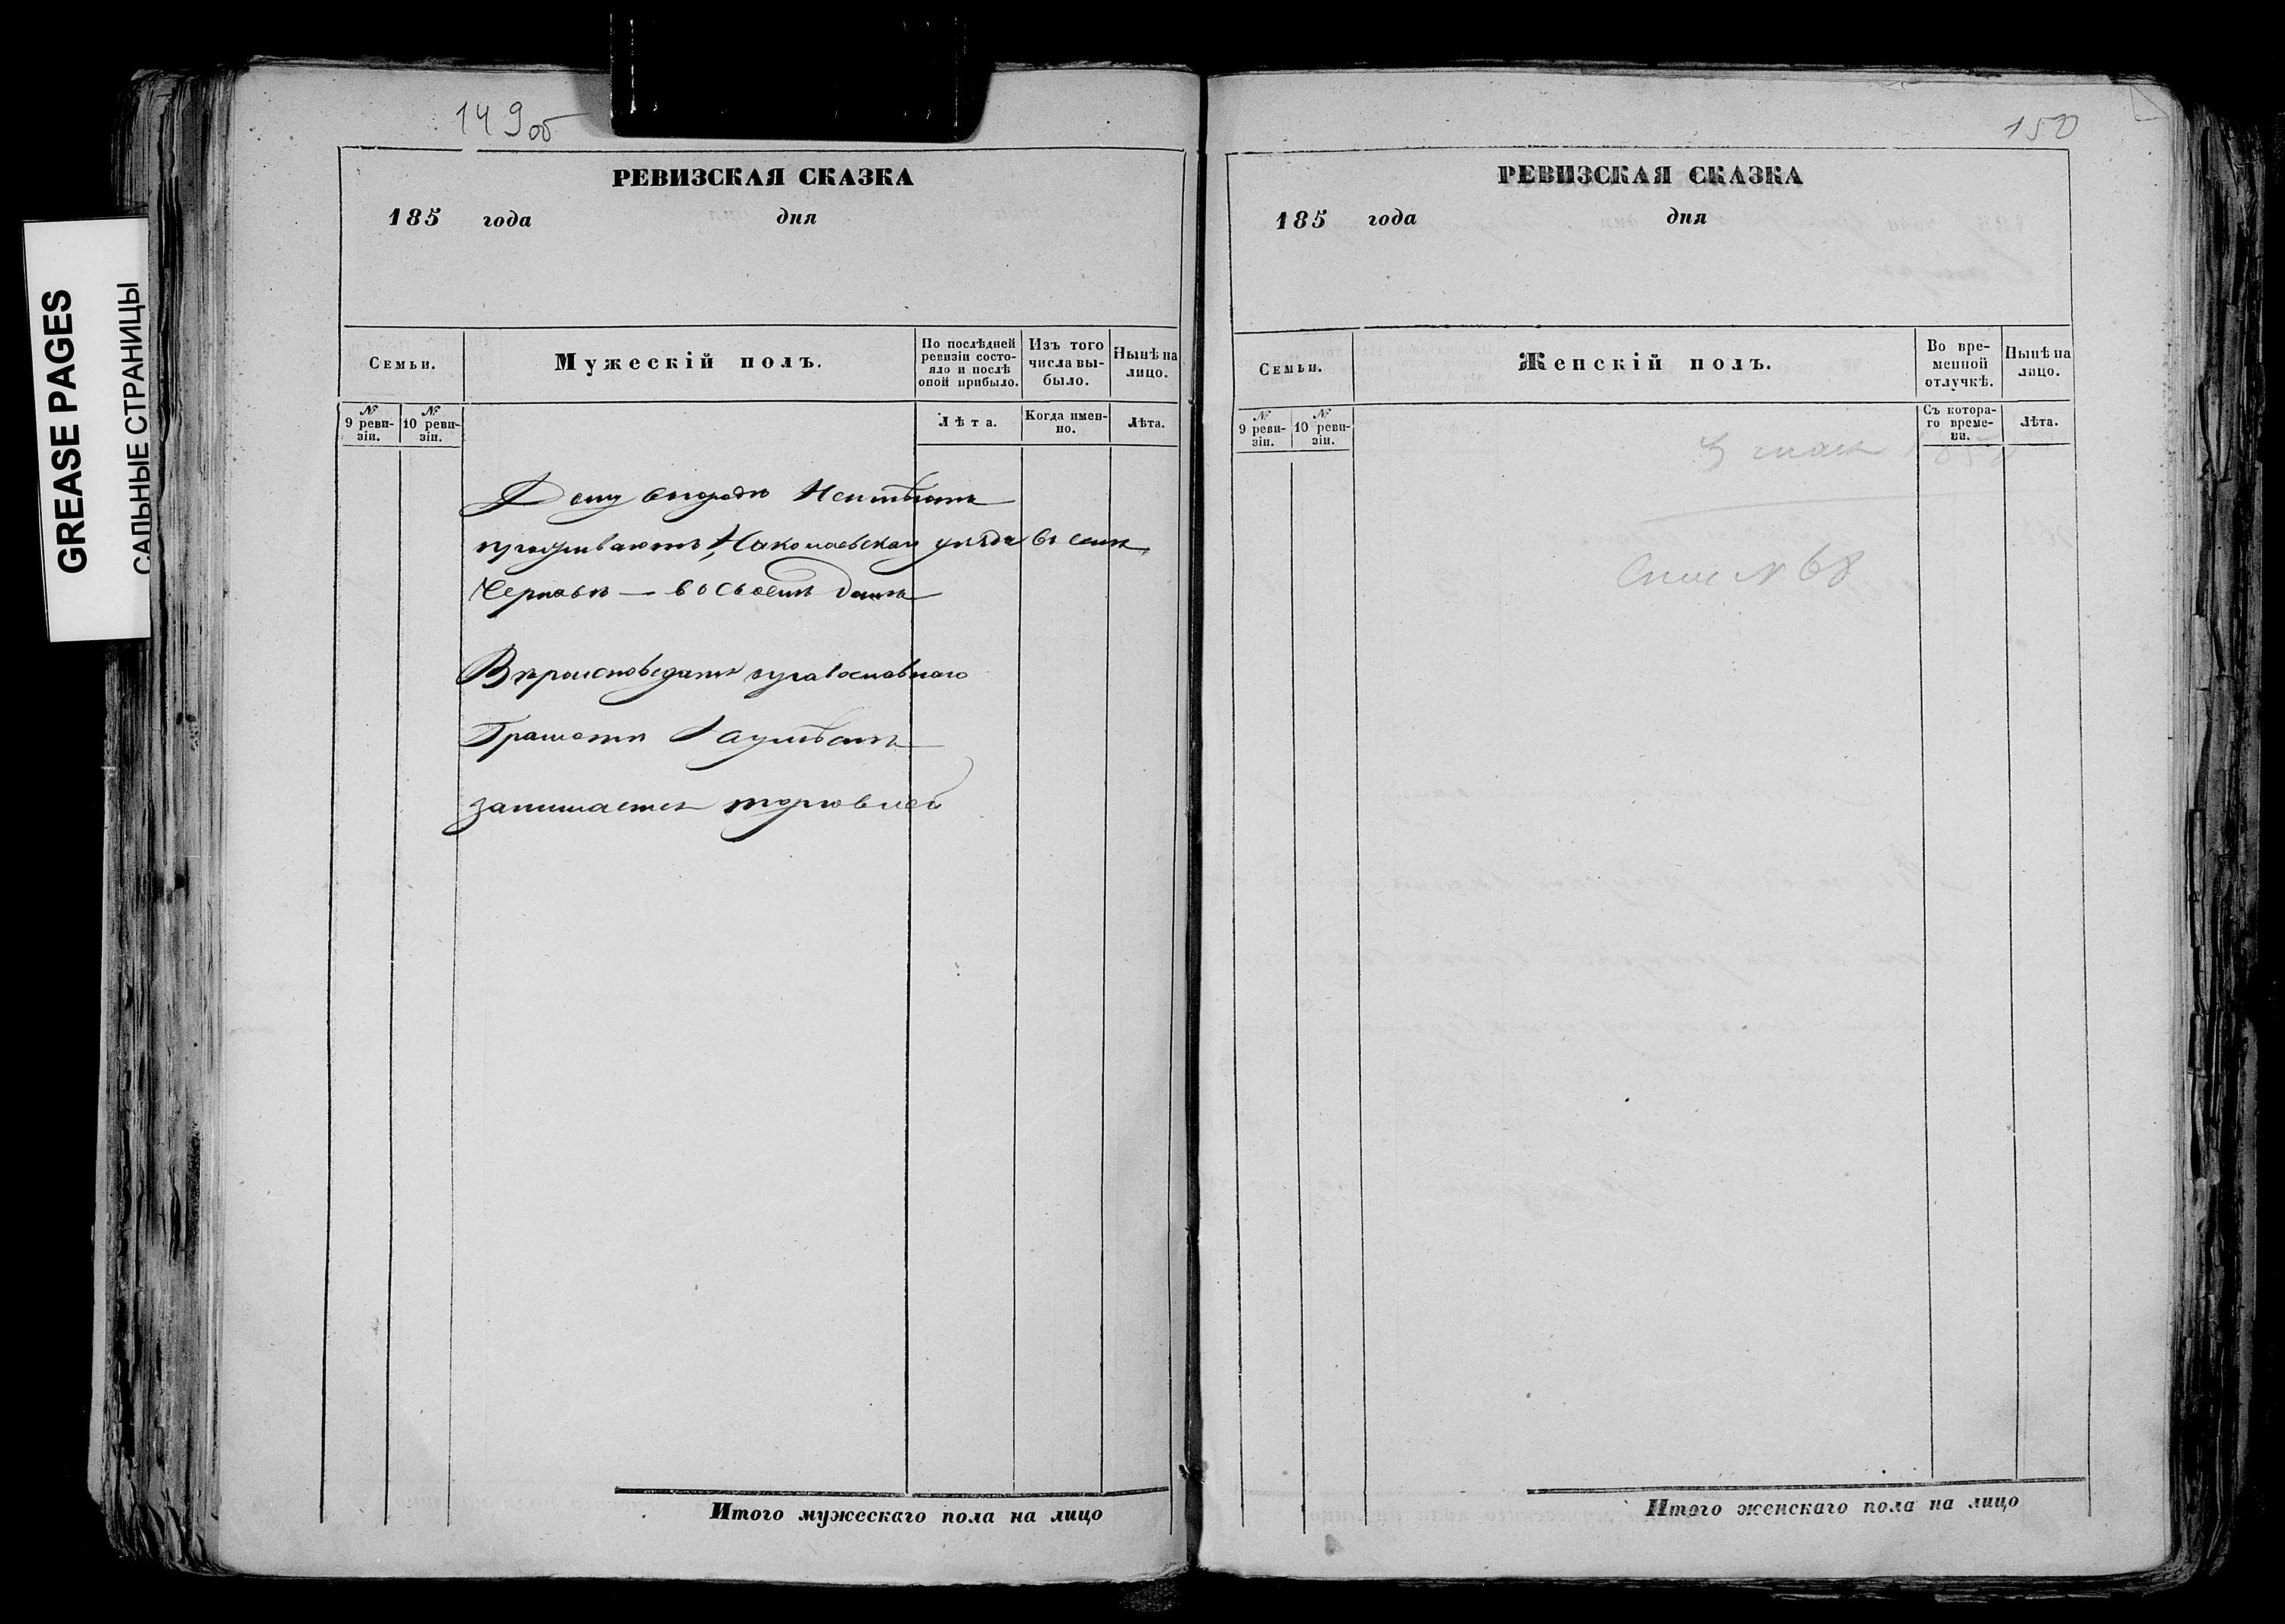 GREASE PAGES
САЛЬНЫЕ СТРАНИЦЫ
149об
РЕВИЗСКАЯ СКАЗКА
185 года дня
Семьи.
Мужескій полъ.
По послѣдней ревизіи состо-
яло и послѣ
оной прибыло.
Изъ того
числа вы-
было.
Нынѣ на
лицо.
№
9 реви-
зіи.
№
10 реви-
зіи.
Лѣта.
Когда имен-
но.
Лѣта.
Дому въ городѣ Неимѣютъ
проживаютъ, Николаевскаго уѣзда въ селѣ
Черновѣ — во своемъ домѣ
Вѣроисповеданія православнаго
Грамотѣ
занимается торговлей
Итого мужескаго пола на лицо
150
РЕВИЗСКАЯ СКАЗКА
185 года дня
Семьи.
Женскій полъ.
Во вре-
менной
отлучкѣ.
Нынѣ на
лицо.
№
9 реви-
зіи.
№
10 реви-
зіи.
Съ котора-
го време-
ни.
Лѣта.
№ 68
Итого женскаго пола на лицо